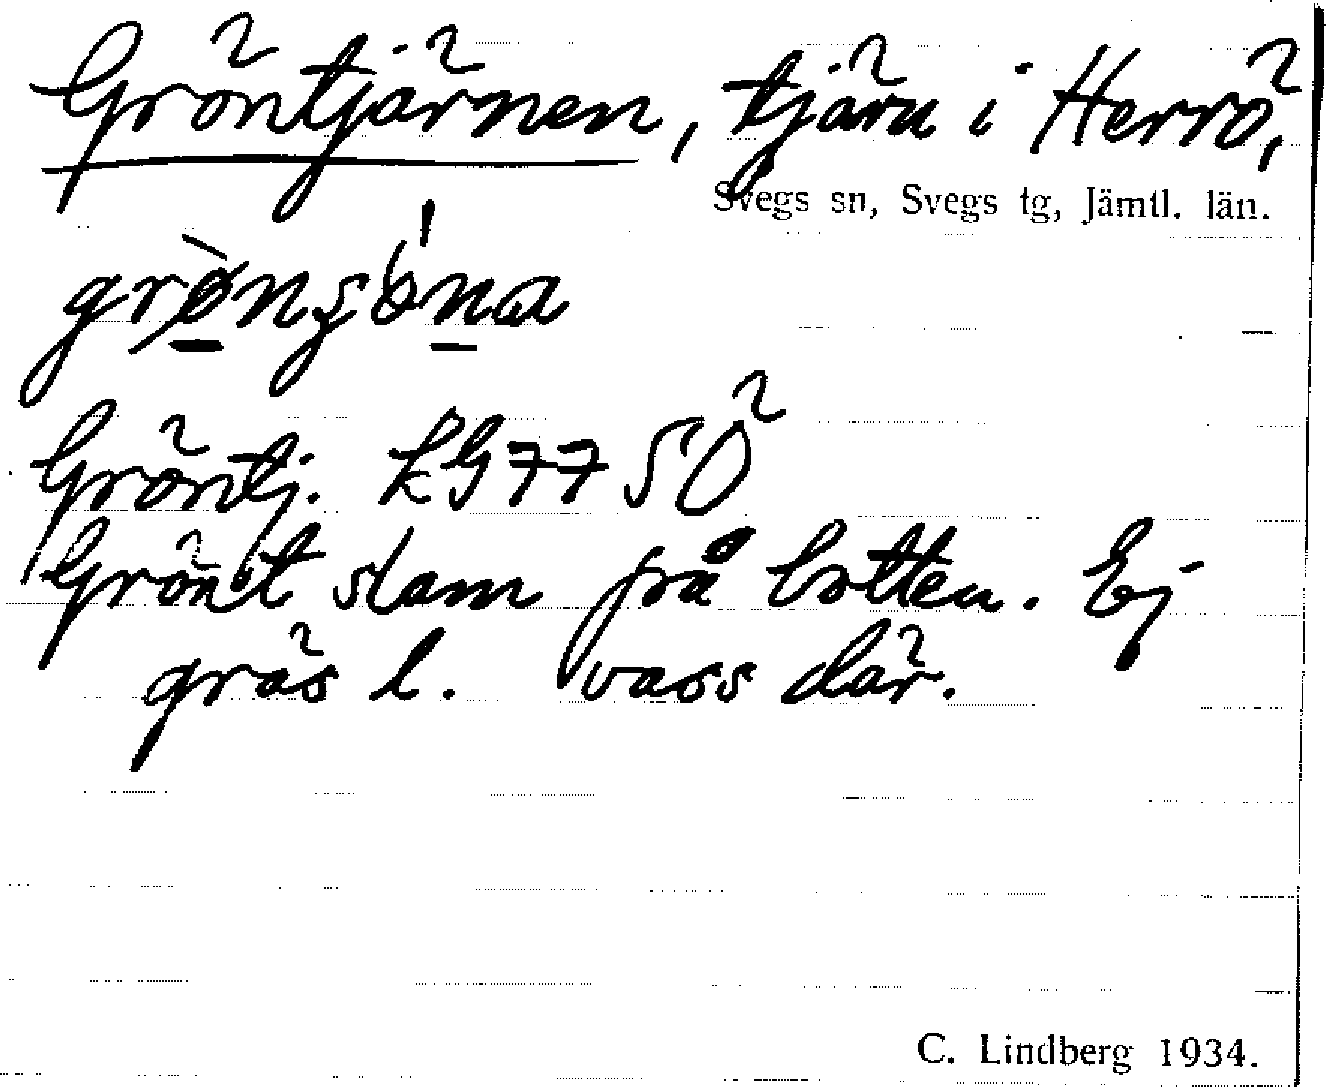 Gröntjärnen, tjärn i Herrö,
Svegs sn, Svegs tg, Jämtl. län.
Gröntj. kG77 SÖ
Grönt slam på botten. Ej
gräs l. vass där.
C. Lindberg 1934.